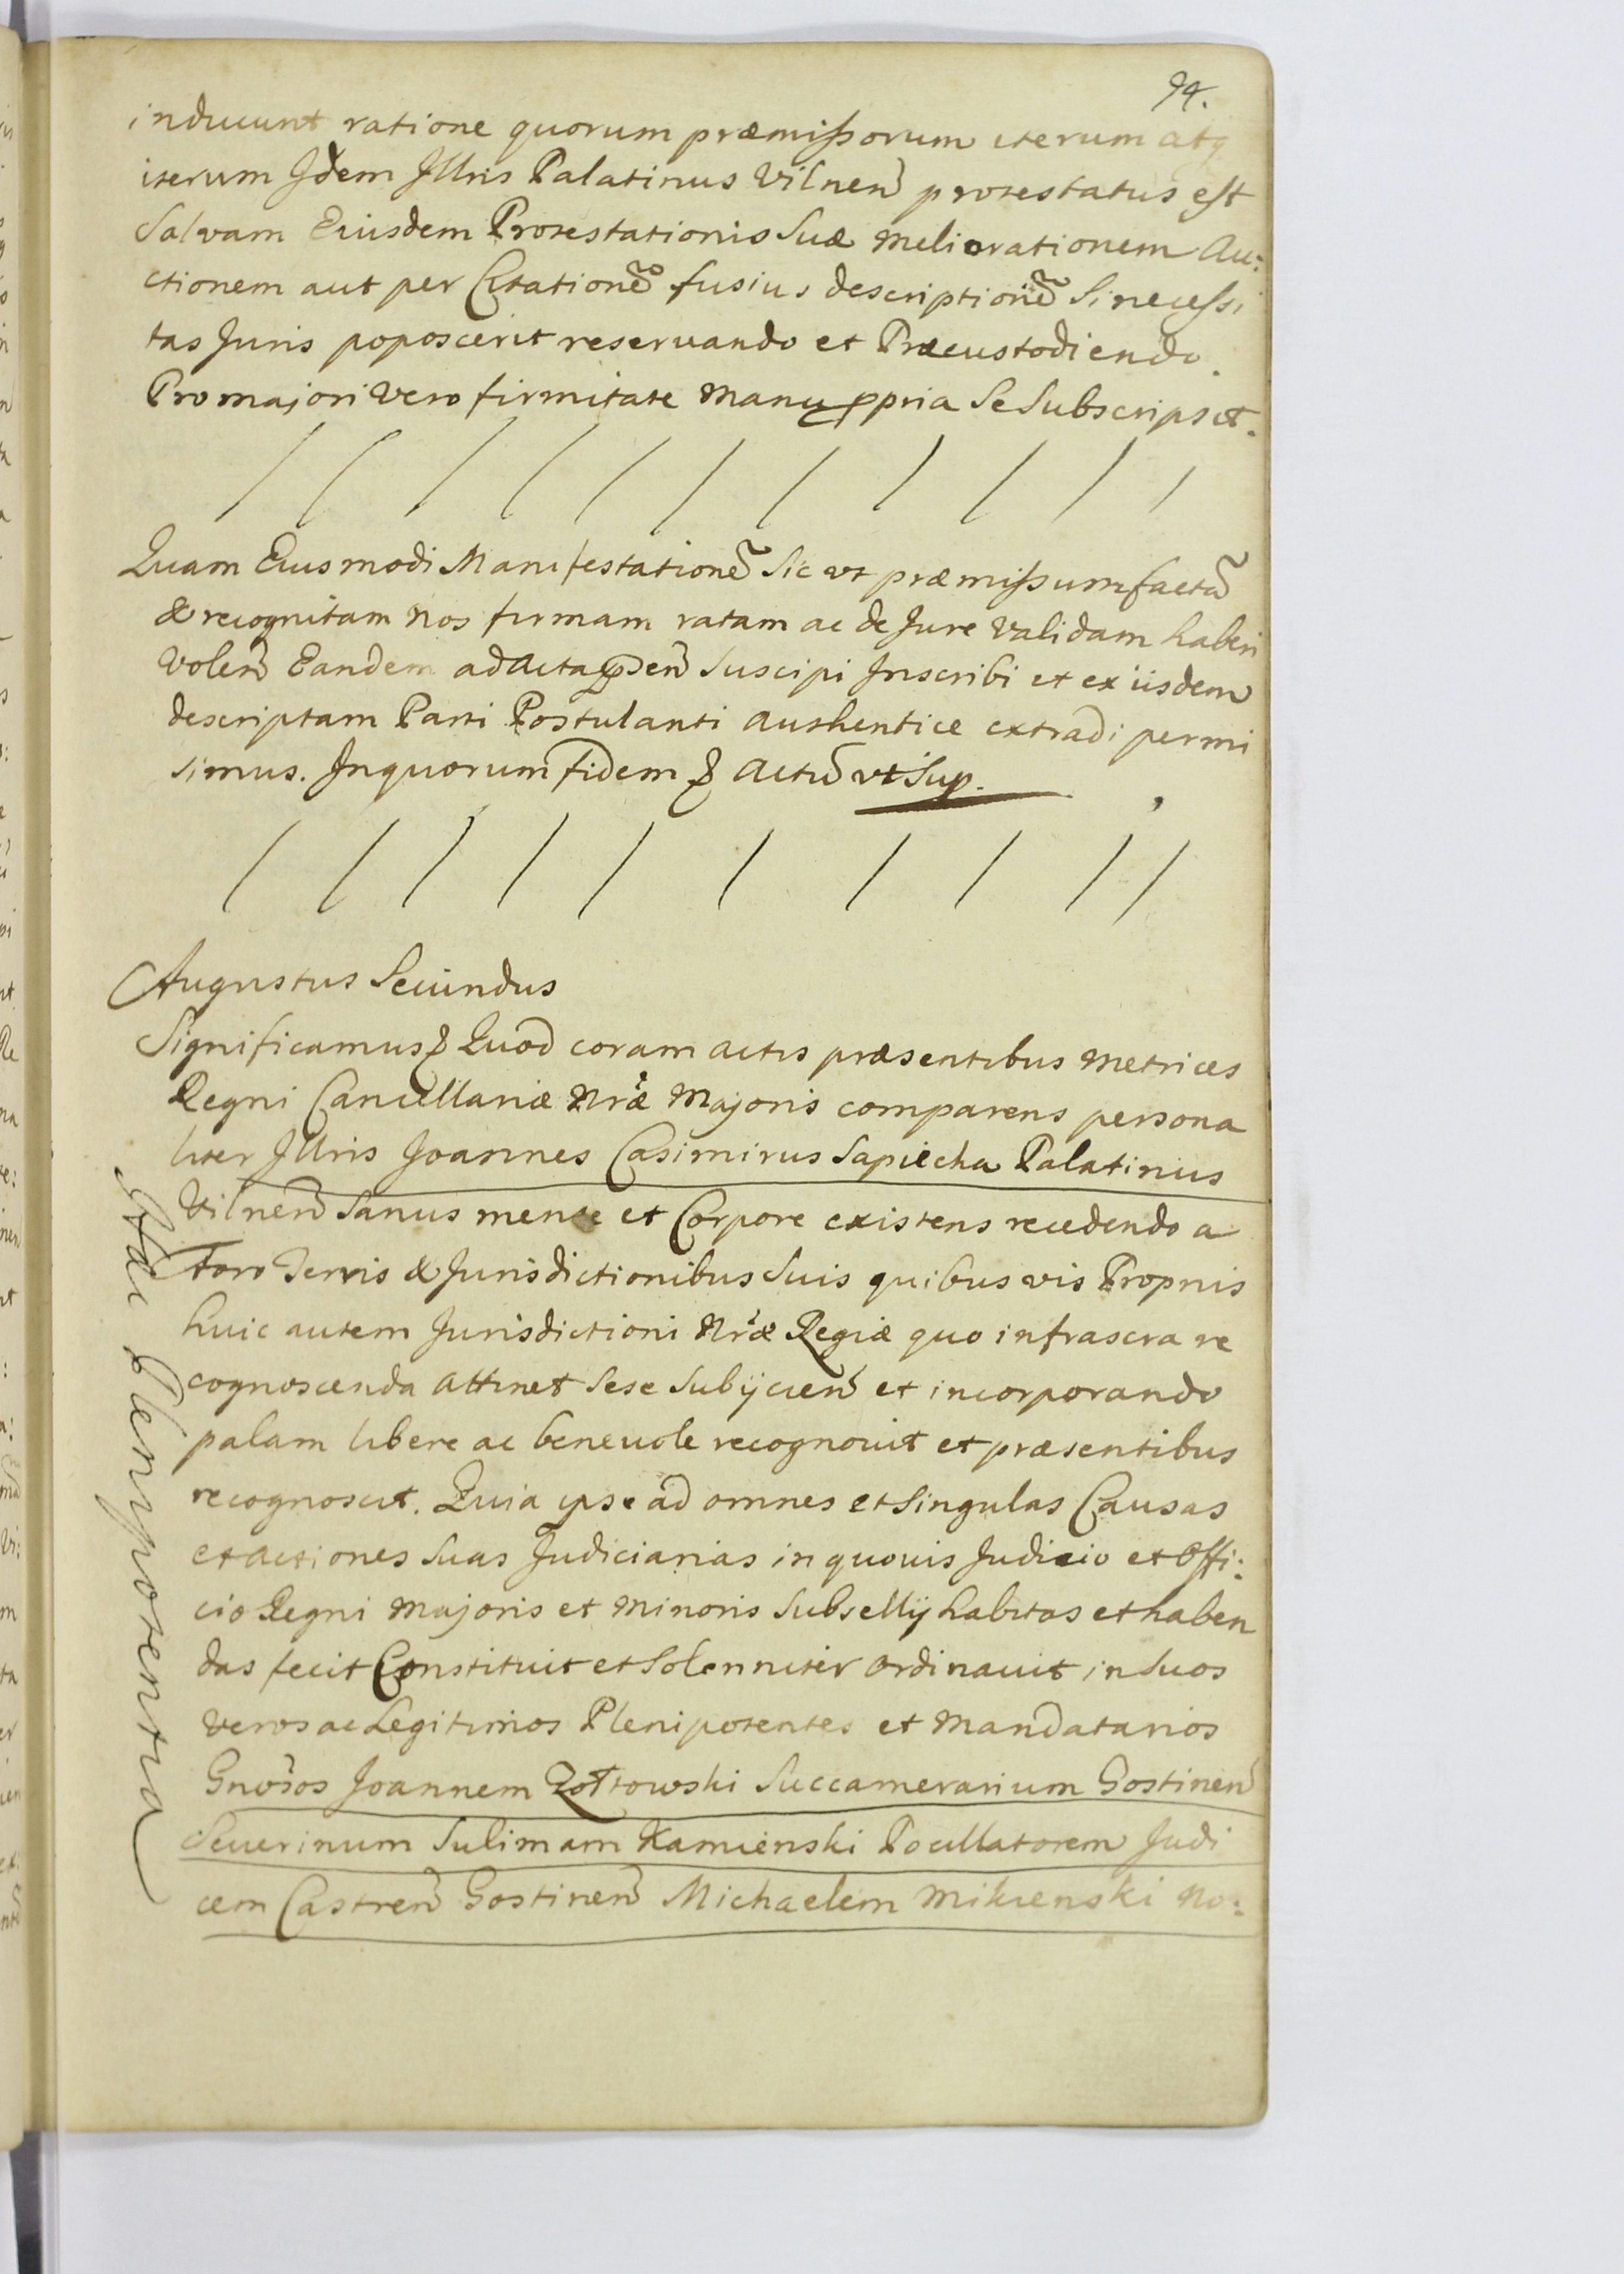 94.
inducunt ratione quorum præmissorum iterum atq
iterum Idem Illris Palatinus Vilnen̄ protestatus est
Salvam Eiusdem Protestationis Suæ meliorationem Au:
ctionem aut per Citationẽ fusius descriptionẽ Si necessi
tas Juris poposcerit reservando et Præcustodiendo.
Pro majori Vero firmitate manu ppria Se Subscripsit.
Quam Eiusmodi Manifestationẽ Sic ut præmissum factã
& recognitam nos firmam ratam ac de Jure Validam haberi
Volen̄ Eandem ad Acta psen̄ Suscipi Inscribi et ex iisdem
descriptam Parti Postulanti authentice extradi permi
simus. In quorum fidem & Actũ ut Sup.
Augustus Secundus
Significamus & Quod coram actis præsentibus Metrices
Regni Cancellariæ Nræ Majoris comparens persona
liter Illris Joannes Casimirus Sapiecha Palatinus
Vilnen̄ Sanus mente et Corpore existens recedendo a
Foro Terris & Jurisdictionibus Suis quibusvis Proprijs
huic autem Jurisdictioni Nræ Regiæ quo infrascra re
cognoscenda Attinet Sese Subijcien̄ et incorporando
palam libere ac benevole recognovit et præsentibus
recognoscit. Quia ipse ad omnes et Singulas Causas
et actiones Suas Judiciarias in quovis Judicio et Offi:
cio Regni Majoris et Minoris Subsellij habitas et haben
das fecit Constituit et Solenniter Ordinavit in Suos
Veros ac Legitimos Plenipotentes et Mandatarios
Gnosos Joannem Zołtowski Succamerarium Gostinen̄
Severinum Sulimam Kamienski Pocillatorem Judi
cem Castren̄ Gostinen̄ Michaelem Mikienski No:
Plenipotentia